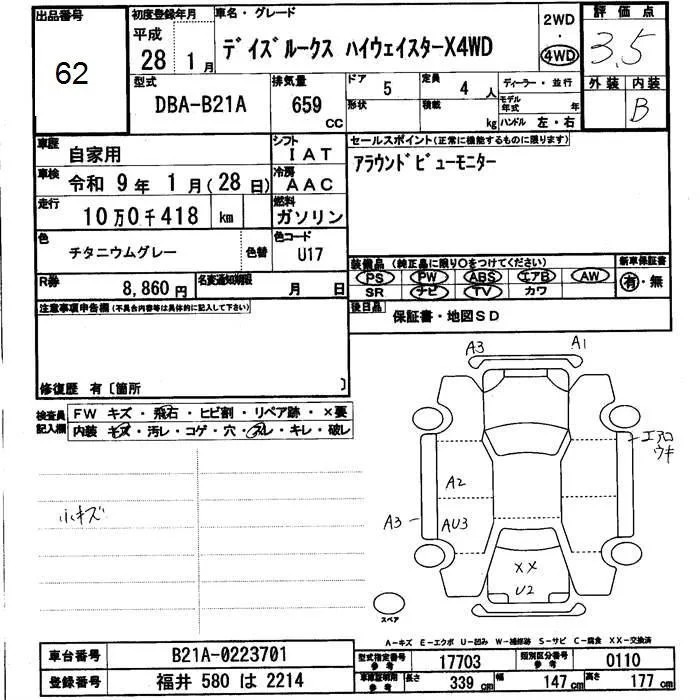 出品番号 62
初度登録年月 平成 28年 1月
車名・グレード デイズルークス ハイウェイスターX4WD
2WD・4WD
評価点 3.5
型式 DBA-B21A
排気量 659 CC
ドア 5
定員 4 人
形状
積載 kg
ディーラー・並行
モデル年式 年
ハンドル 左・右
外装 内装 B
車歴 自家用
シフト IAT
車検 令和 9年 1月(28日)
冷房 AAC
走行 10万0千418 km
燃料 ガソリン
色 チタニウムグレー 色替
色コード U17
R券 8,860円
名変通知期限 月 日
セールスポイント(正常に機能するものに限ります)
アラウンドビューモニター
装備品 (純正品に限り○をつけてください)
PS PW ABS エアB AW
SR ナビ TV カワ
新車保証書 有・無
後日品 保証書・地図SD
注意事項申告欄(不具合内容等は具体的に記入して下さい)
修復歴 有〔箇所 〕
検査員記入欄
FW キズ・飛石・ヒビ割・リペア跡・×要
内装 キズ・汚レ・コゲ・穴・スレ・キレ・破レ
小キズ
A3 A1
エアロ
ウキ
A2
A3 AU3
XX
U2
スペア
A-キズ E-エクボ U-凹み W-補修跡 S-サビ C-腐食 XX-交換済
車台番号 B21A-0223701
登録番号 福井 580 は 2214
型式指定番号 参考 17703
類別区分番号 参考 0110
車庫証明用 参考 長さ 339 cm 幅 147 cm 高さ 177 cm